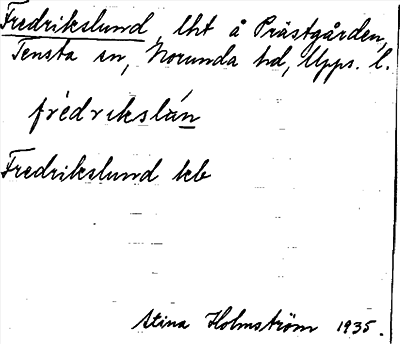 Fredrikslund, lht å Prästgården,
Tensta sn, Norunda hd, Upps. l.
frédrikslán
Fredrikslund kb
Stina Holmström 1935.